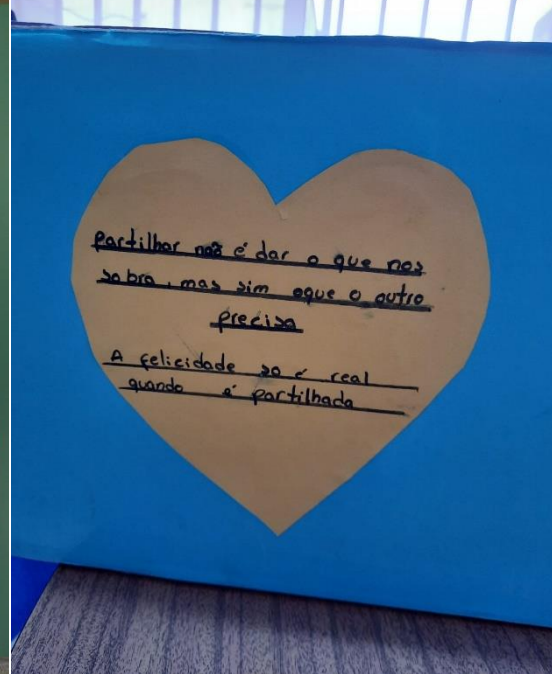 partilhar não é dar o que nos
sobra, mas sim oque o outro
precisa
A felicidade so é real
quando é partilhada